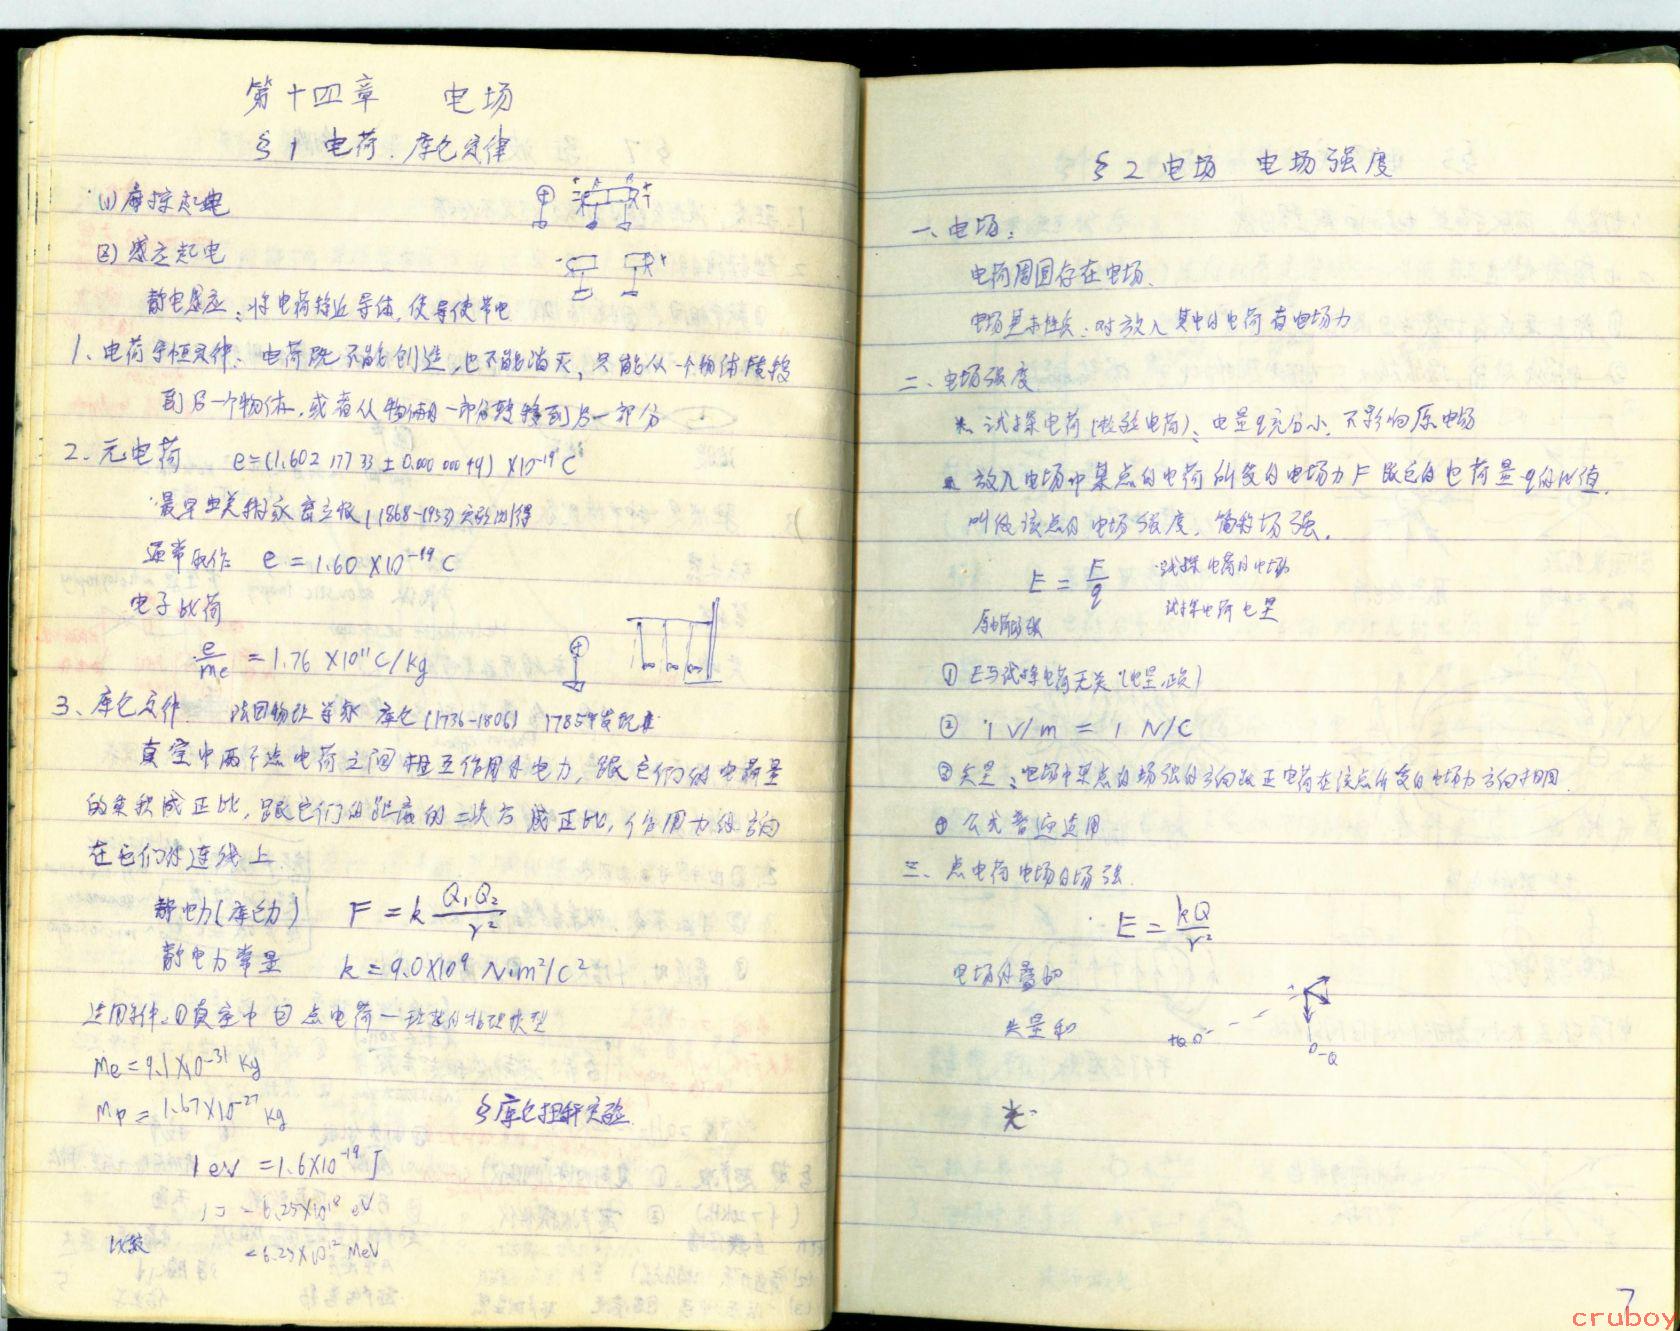 第十四章 电场
§1 电荷.库仑定律
(1) 摩擦起电
(2) 感应起电
静电感应:将电荷移近导体,使导体带电
1、电荷守恒定律: 电荷既不能创造,也不能消灭,只能从一个物体转移
到另一个物体,或者从物体的一部分转移到另一部分
2、元电荷 e=(1.602 177 33 ± 0.000 000 49) ×10⁻¹⁹C
最早由美物家密立根(1868-1953)实验测得
通常取作 e = 1.60 ×10⁻¹⁹ C
电子比荷
e/me = 1.76 ×10¹¹ C/kg
3、库仑定律. 法国物理学家 库仑(1736-1806) 1785年发现
真空中两个点电荷之间相互作用的电力,跟它们的电荷量
的乘积成正比,跟它们的距离的二次方成正比,作用力的方向
在它们的连线上.
静电力(库仑力) F = k Q₁Q₂/r²
静电力常量 k = 9.0×10⁹ N·m²/C²
适用条件:①真空中 ②点电荷—理想的物理模型
Me = 9.1×10⁻³¹ kg
Mp = 1.67×10⁻²⁷ kg
§库仑扭秤实验
1 eV = 1.6×10⁻¹⁹ J
1J = 6.25×10¹⁸ eV
= 6.25×10¹² MeV
比较
§2 电场 电场强度
一、电场:
电荷周围存在电场.
电场基本性质:对放入其中的电荷有电场力
二、电场强度
※ 试探电荷(检验电荷)、电量q充分小,不影响原电场
放入电场中某点的电荷所受的电场力F跟它的电荷量q的比值,
叫做该点的电场强度,简称场强.
E = F/q
试探电荷的电场
试探电荷电量
原电荷场强
① E与试探电荷无关(电量,正负)
② 1 V/m = 1 N/C
③ 矢量:电场中某点的场强的方向跟正电荷在该点所受的电场力方向相同.
④ 公式普遍适用
三、点电荷电场的场强.
E = kQ/r²
电场的叠加
矢量和
+Q
-Q
光
7
cruboy